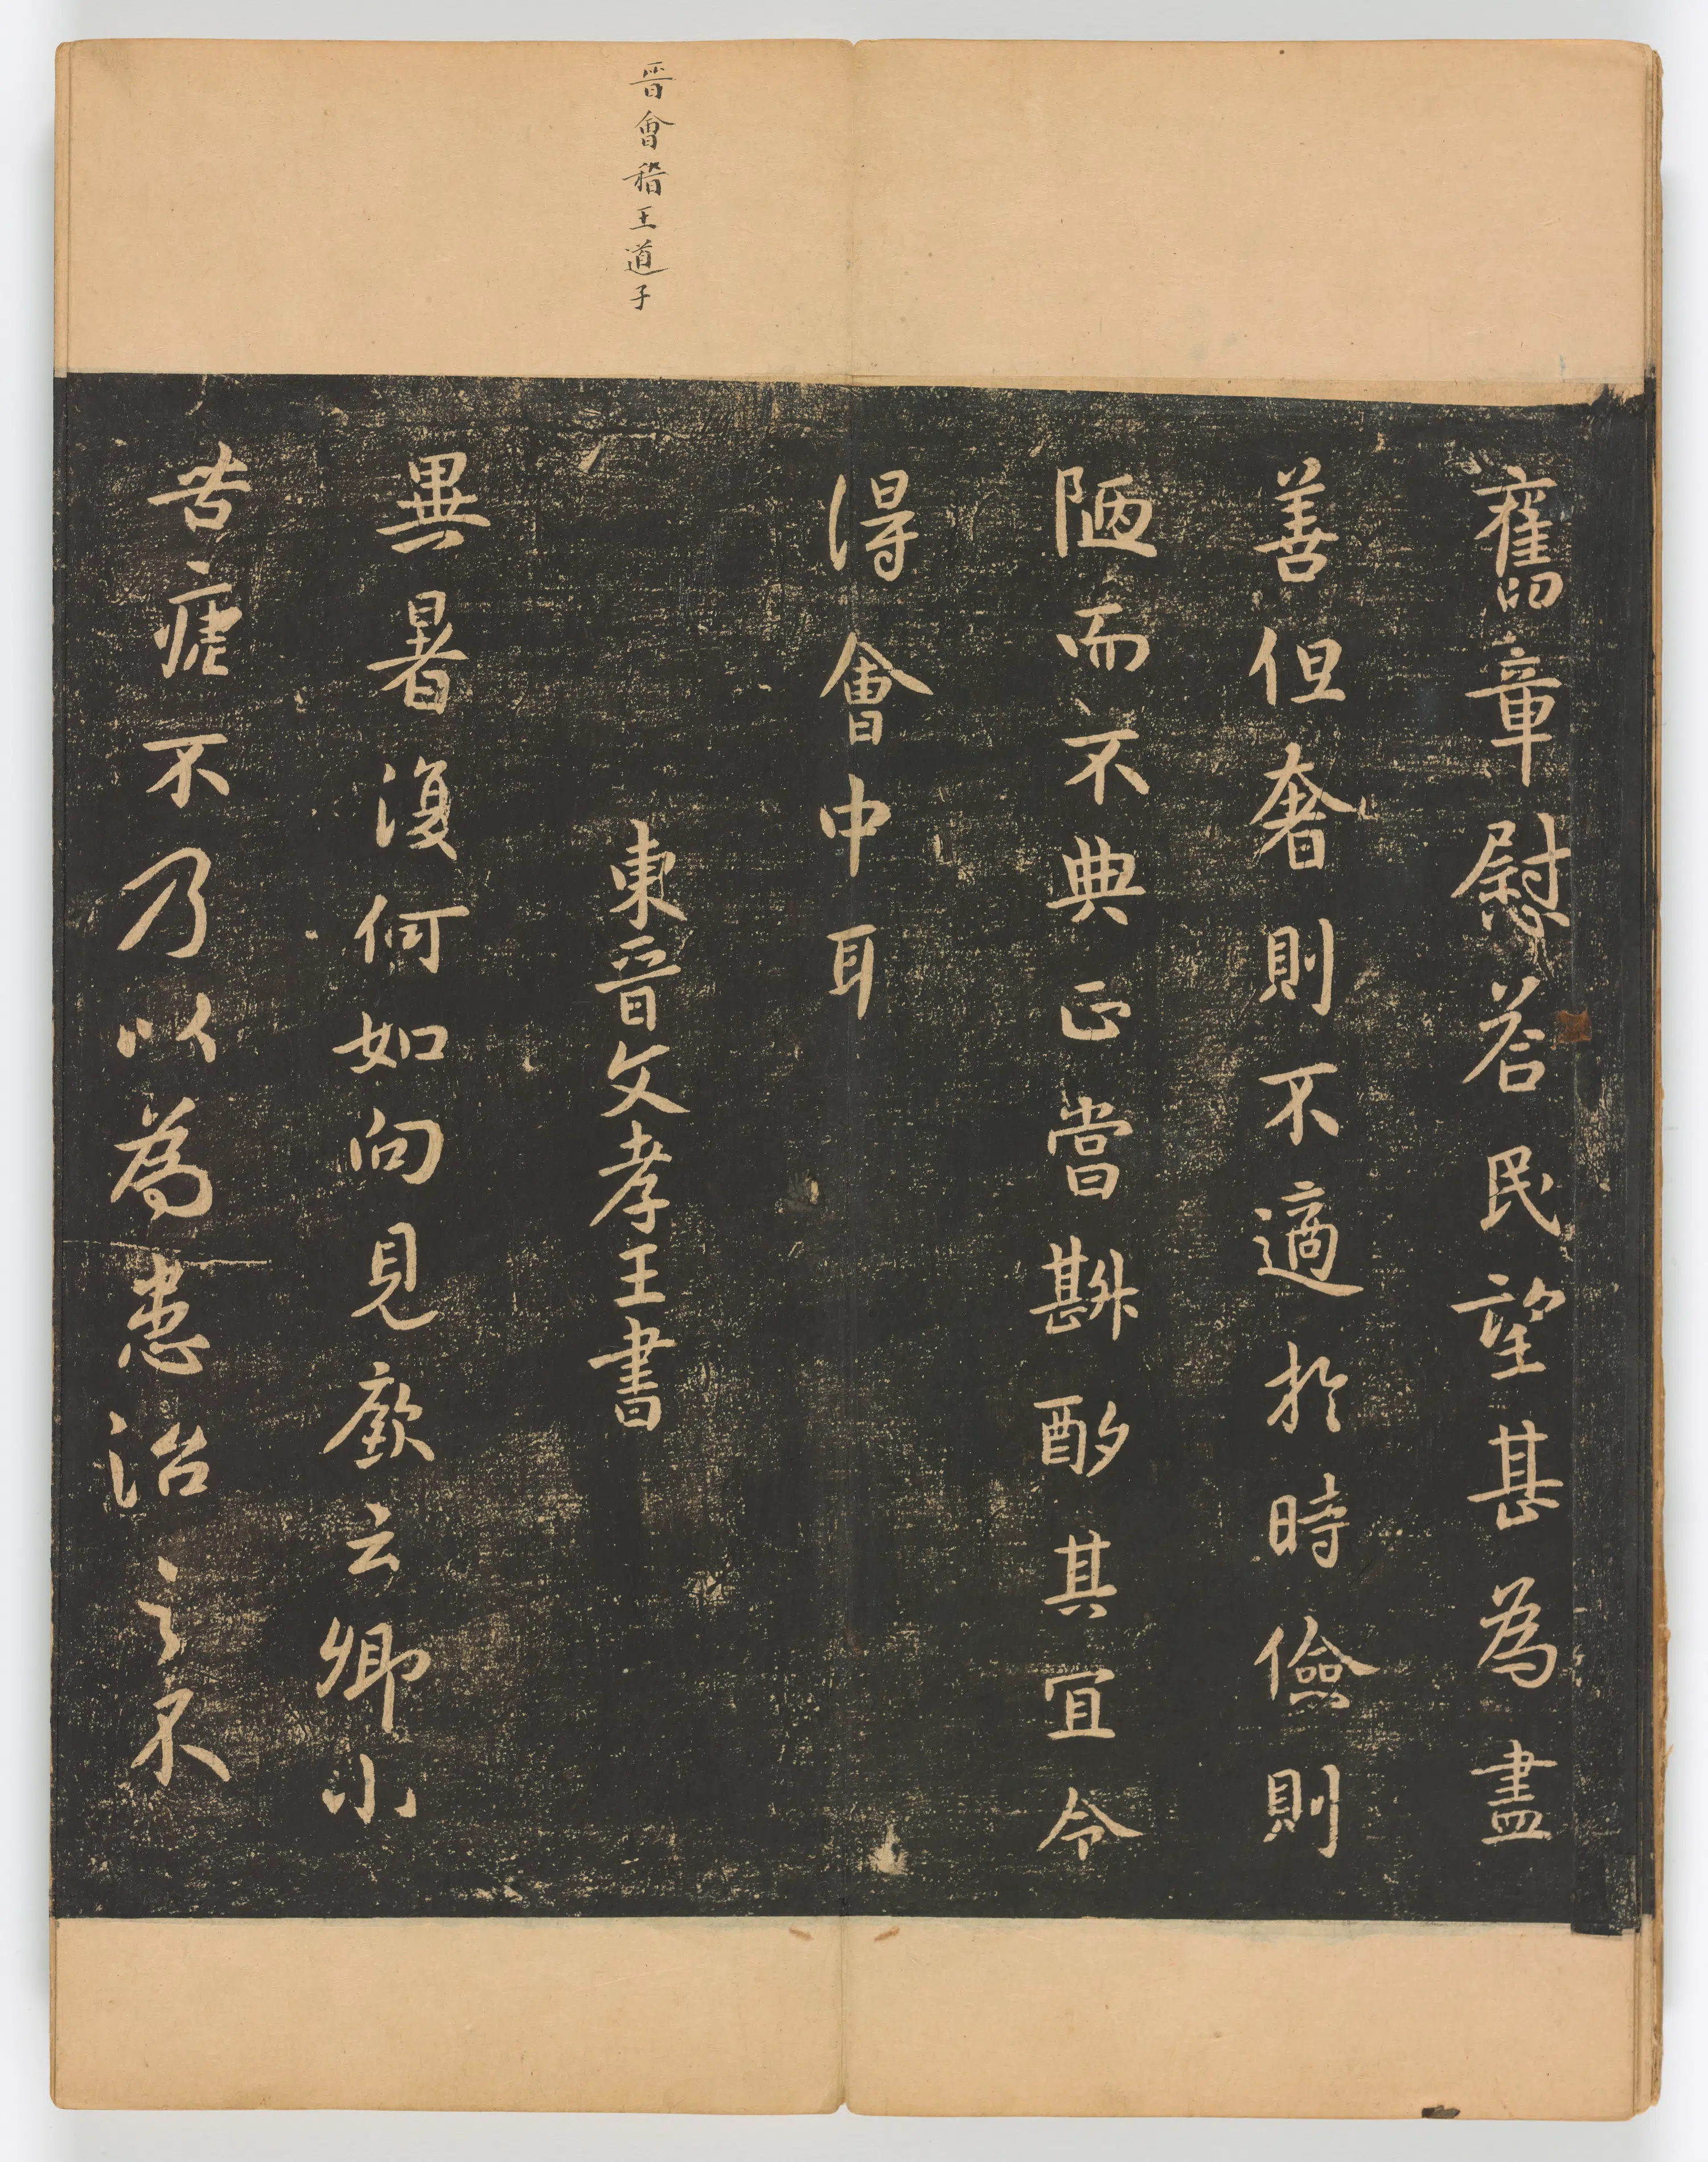 晉會稽王道子
舊章慰荅民望甚為盡
善但奢則不適於時儉則
陋而不典正當斟酌其宜令
得會中耳
東晉文孝王書
異暑復何如向見廞云卿小
苦瘧不乃以為患治之不